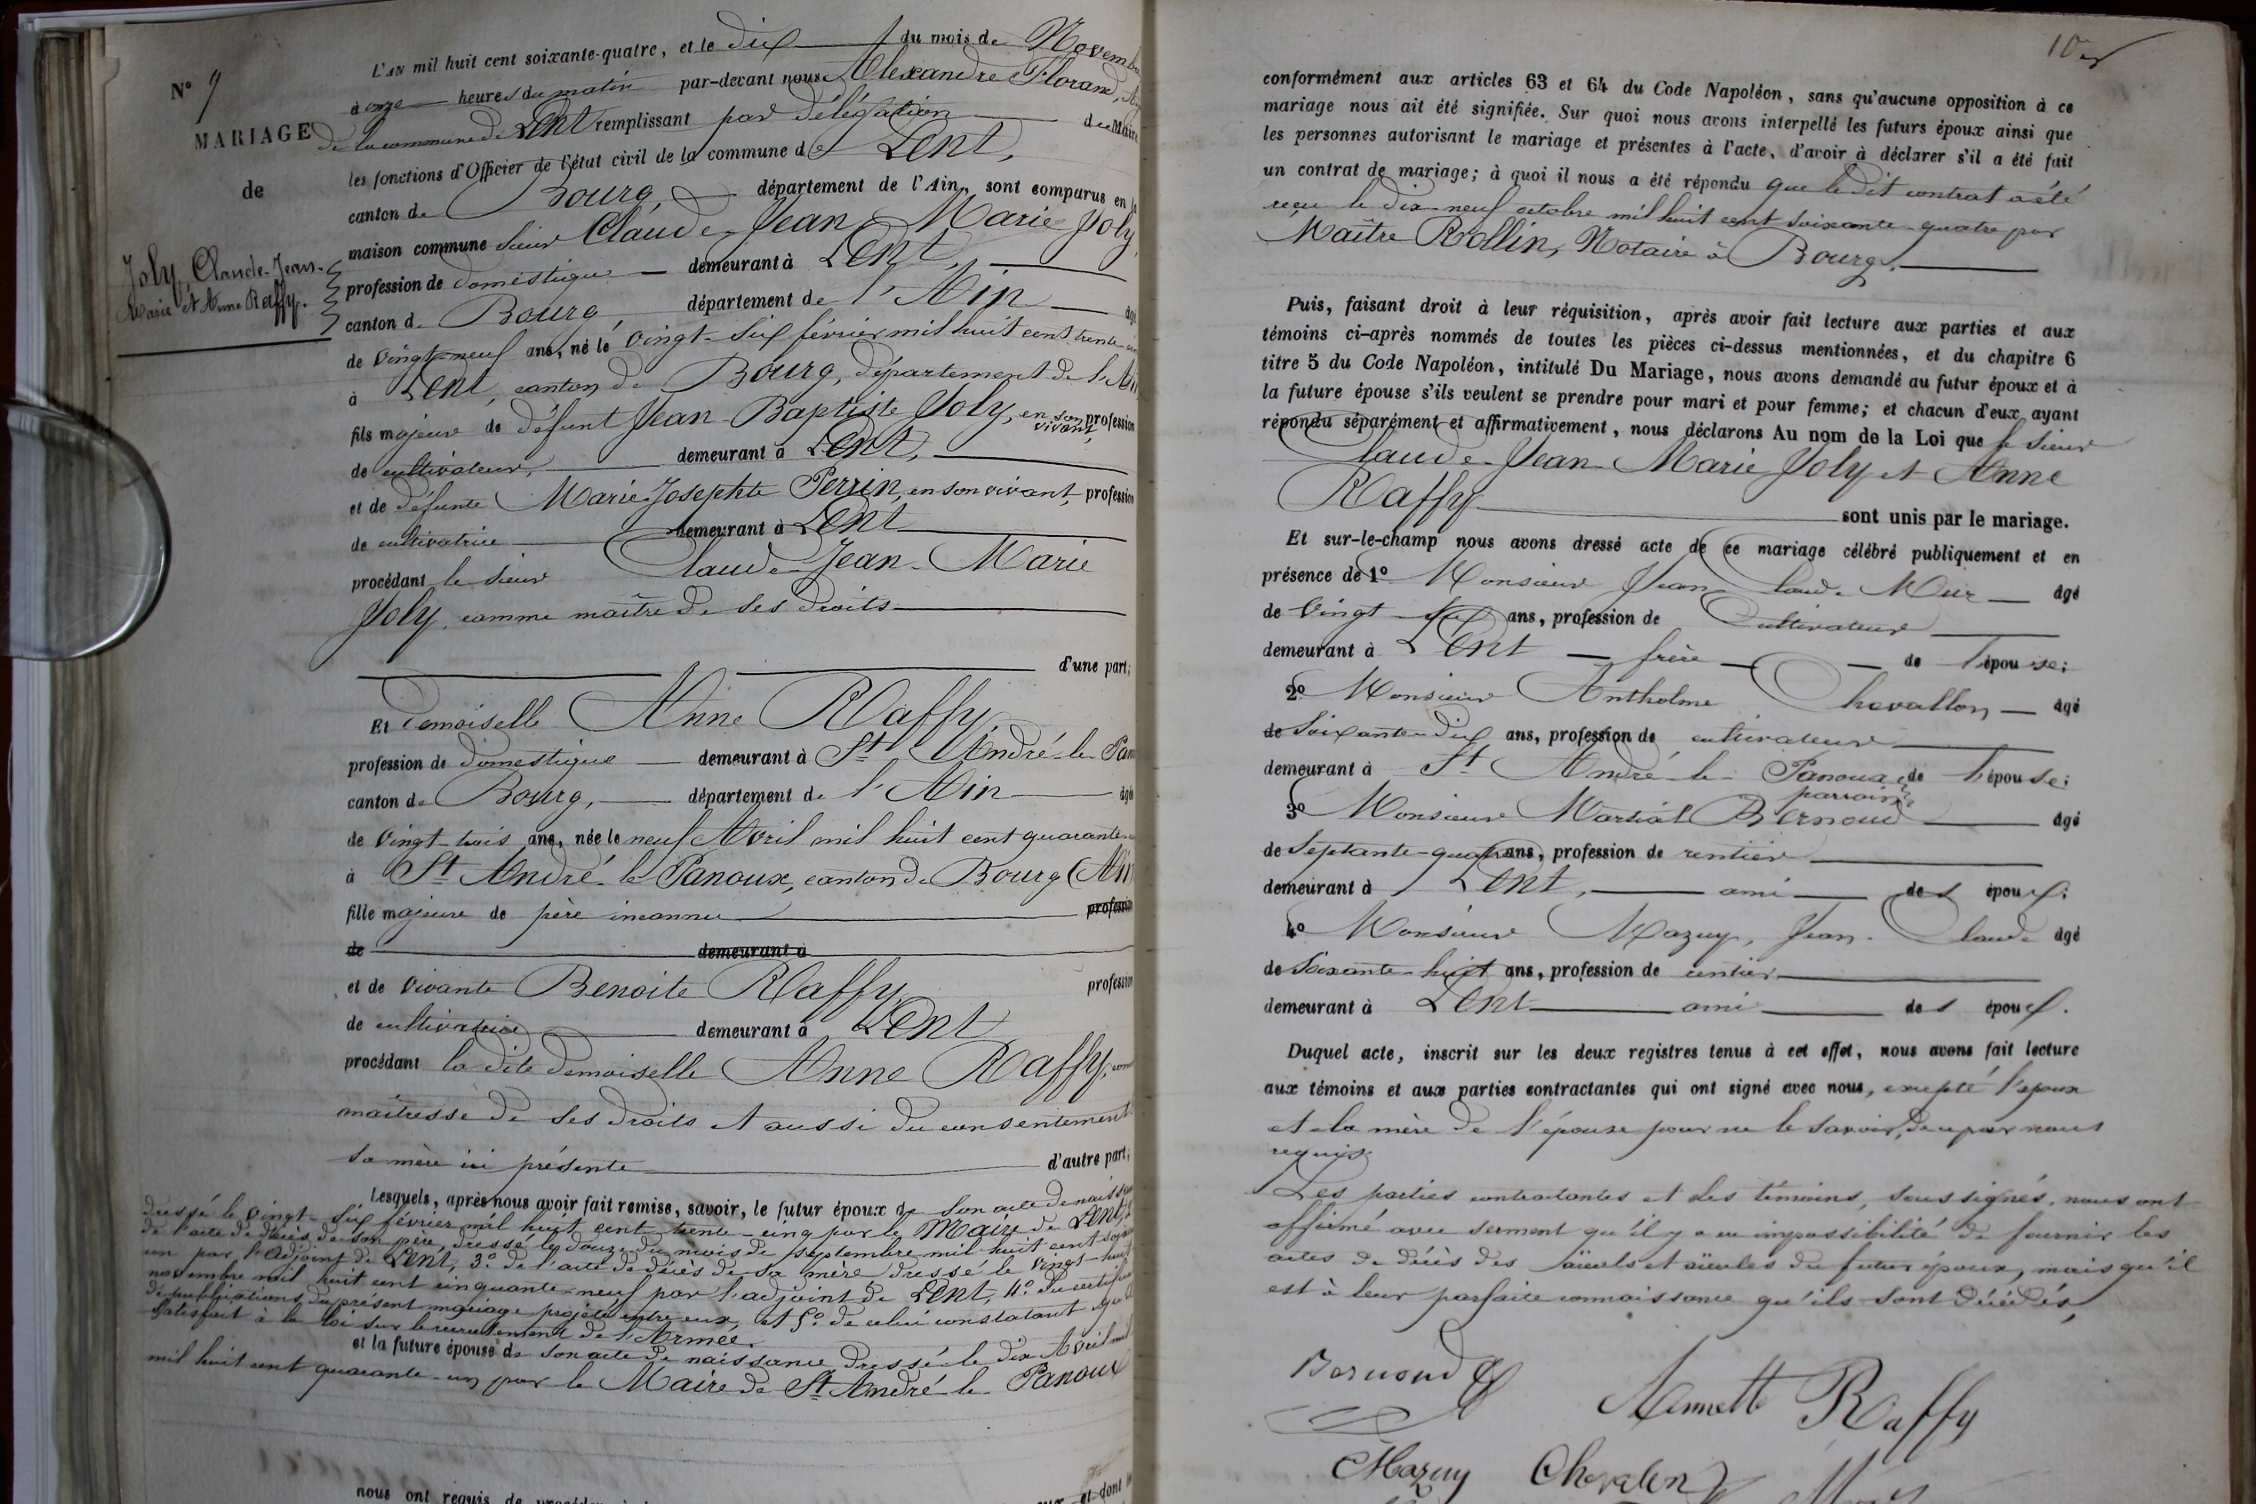 N° 9
MARIAGE
de
Joly, Claude-Jean-
Marie et Anne Raffy.
L'AN mil huit cent soixante-quatre, et le dix du mois de Novembre
à onze heures du matin par-devant nous Alexandre Florand,
de la commune de Lent remplissant par délégation du Maire
les fonctions d'Officier de l'état civil de la commune de Lent,
canton de Bourg, département de l'Ain, sont comparus en la
maison commune sieur Claude-Jean-Marie Joly,
profession de domestique demeurant à Lent,
canton de Bourg, département de l'Ain âgé
de vingt-neuf ans, né le vingt-six février mil huit cent trente-cinq
à Lent, canton de Bourg, département de l'Ain
fils majeur de défunt Jean-Baptiste Joly, en son vivant, profession
de cultivateur, demeurant à Lent,
et de défunte Marie Josephte Perrin, en son vivant, profession
de cultivatrice demeurant à Lent
procédant le sieur Claude-Jean-Marie
Joly, comme maître de ses droits
d'une part;
Et demoiselle Anne Raffy,
profession de domestique demeurant à St André-le-Pan
canton de Bourg, département de l'Ain âgée
de vingt-trois ans, née le neuf Avril mil huit cent quarante
à St André-le-Panoux, canton de Bourg (Ain
fille majeure de père inconnu profession
de demeurant à
et de vivante Benoite Raffy, profession
de cultivatrice demeurant à Lent
procédant la dite demoiselle Anne Raffy, comme
maîtresse de ses droits et aussi du consentement
sa mère ici présente d'autre part;
Lesquels, après nous avoir fait remise, savoir, le futur époux de son acte de naissance
dressé le vingt-six février mil huit cent trente-cinq par le Maire de Lent,
de l'acte de décès de son père, dressé le douze du mois de septembre mil huit cent soixante
un par l'Adjoint de Lent, 3° de l'acte de décès de sa mère dressé le vingt-huit
novembre mil huit cent cinquante-neuf par l'adjoint de Lent, 4° du certificat
de publications du présent mariage projeté entre eux, et 5° de celui constatant qu'il
satisfait à la loi sur le recrutement de l'Armée.
et la future épouse de son acte de naissance dressé le dix Avril mil
mil huit cent quarante-un par le Maire de St André-le-Panoux
nous ont requis de
et dont
10
conformément aux articles 63 et 64 du Code Napoléon, sans qu'aucune opposition à ce
mariage nous ait été signifiée. Sur quoi nous avons interpellé les futurs époux ainsi que
les personnes autorisant le mariage et présentes à l'acte, d'avoir à déclarer s'il a été fait
un contrat de mariage; à quoi il nous a été répondu que le dit contrat a été
reçu le dix-neuf octobre mil huit cent soixante-quatre par
Maître Rollin, Notaire à Bourg.
Puis, faisant droit à leur réquisition, après avoir fait lecture aux parties et aux
témoins ci-après nommés de toutes les pièces ci-dessus mentionnées, et du chapitre 6
titre 5 du Code Napoléon, intitulé Du Mariage, nous avons demandé au futur époux et à
la future épouse s'ils veulent se prendre pour mari et pour femme; et chacun d'eux ayant
répondu séparément et affirmativement, nous déclarons Au nom de la Loi que le sieur
Claude-Jean-Marie Joly et Anne
Raffy sont unis par le mariage.
Et sur-le-champ nous avons dressé acte de ce mariage célébré publiquement et en
présence de 1° Monsieur Jean Claude Mur âgé
de vingt-six ans, profession de Cultivateur
demeurant à Lent frère de l'épouse;
2° Monsieur Antholme Chevallon âgé
de Soixante-dix ans, profession de cultivateur
demeurant à St André-le-Panoux, de l'épouse;
parrain
3° Monsieur Martial Bernoud âgé
de Septante-quatre ans, profession de rentier
demeurant à Lent, ami des époux;
4° Monsieur Mazuy, Jean-Claude âgé
de Soixante-huit ans, profession de rentier
demeurant à Lent ami des époux.
Duquel acte, inscrit sur les deux registres tenus à cet effet, nous avons fait lecture
aux témoins et aux parties contractantes qui ont signé avec nous, excepté l'époux
et la mère de l'épouse pour ne le savoir, de ce par nous
requis.
Les parties contractantes et les témoins, soussignés, nous ont
affirmé avec serment qu'il y a eu impossibilité de fournir les
actes de décès des aïeuls et aïeules du futur époux, mais qu'il
est à leur parfaite connaissance qu'ils sont décédés,
Bernoud
Annette Raffy
Mazuy Chevalon